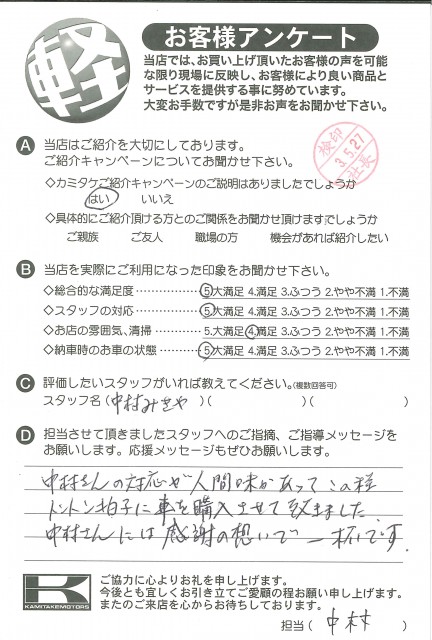 軽
お客様アンケート
当店では、お買い上げ頂いたお客様の声を可能
な限り現場に反映し、お客様により良い商品と
サービスを提供する事に努めています。
大変お手数ですが是非お声をお聞かせ下さい。
A 当店はご紹介を大切にしております。
ご紹介キャンペーンについてお聞かせ下さい。
検印
3.5.27
社長
◇カミタケご紹介キャンペーンのご説明はありましたでしょうか
はい いいえ
◇具体的にご紹介頂ける方とのご関係をお聞かせ頂けますでしょうか
ご親族 ご友人 職場の方 機会があれば紹介したい
B 当店を実際にご利用になった印象をお聞かせ下さい。
◇総合的な満足度 ⋯⋯⋯⋯⋯ 5.大満足 4.満足 3.ふつう 2.やや不満 1.不満
◇スタッフの対応 ⋯⋯⋯⋯⋯ 5.大満足 4.満足 3.ふつう 2.やや不満 1.不満
◇お店の雰囲気、清掃 ⋯⋯⋯ 5.大満足 4.満足 3.ふつう 2.やや不満 1.不満
◇納車時のお車の状態 ⋯⋯⋯ 5.大満足 4.満足 3.ふつう 2.やや不満 1.不満
C 評価したいスタッフがいれば教えてください。(複数回答可)
スタッフ名 ( 中村みきや )( )( )
D 担当させて頂きましたスタッフへのご指摘、ご指導メッセージを
お願いします。応援メッセージもぜひお願いします。
中村さんの対応が人間味があってこの程
トントン拍子に車を購入させて致ました
中村さんには感謝の想いで一杯です。
K
KAMITAKEMOTORS
ご協力に心よりお礼を申し上げます。
今後とも宜しくお引き立てご愛顧の程お願い申し上げます。
またのご来店を心からお待ちしております。
担当 ( 中村 )